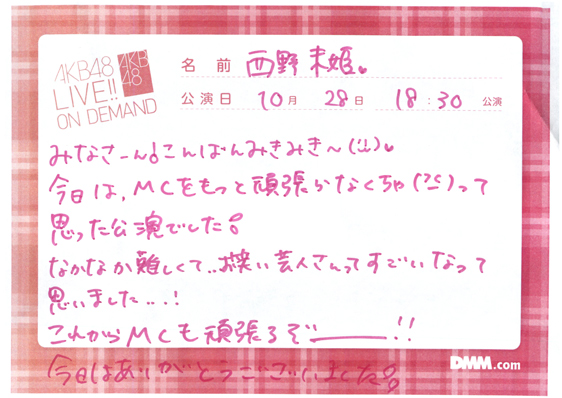 AKB48
LIVE!!
ON DEMAND
AKB
48
名前 西野 未姫
公演日 10月 28日 18:30 公演
みなさーん!こんばんみきみき〜(ᵕ̈)♥
今日は、MCをもっと頑張らなくちゃ(??)って
思った公演でした!
なかなか難しくて..お笑い芸人さんってすごいなって
思いました...!
これからMCも頑張るぞーー!!
今日はありがとうございました!
DMM.com